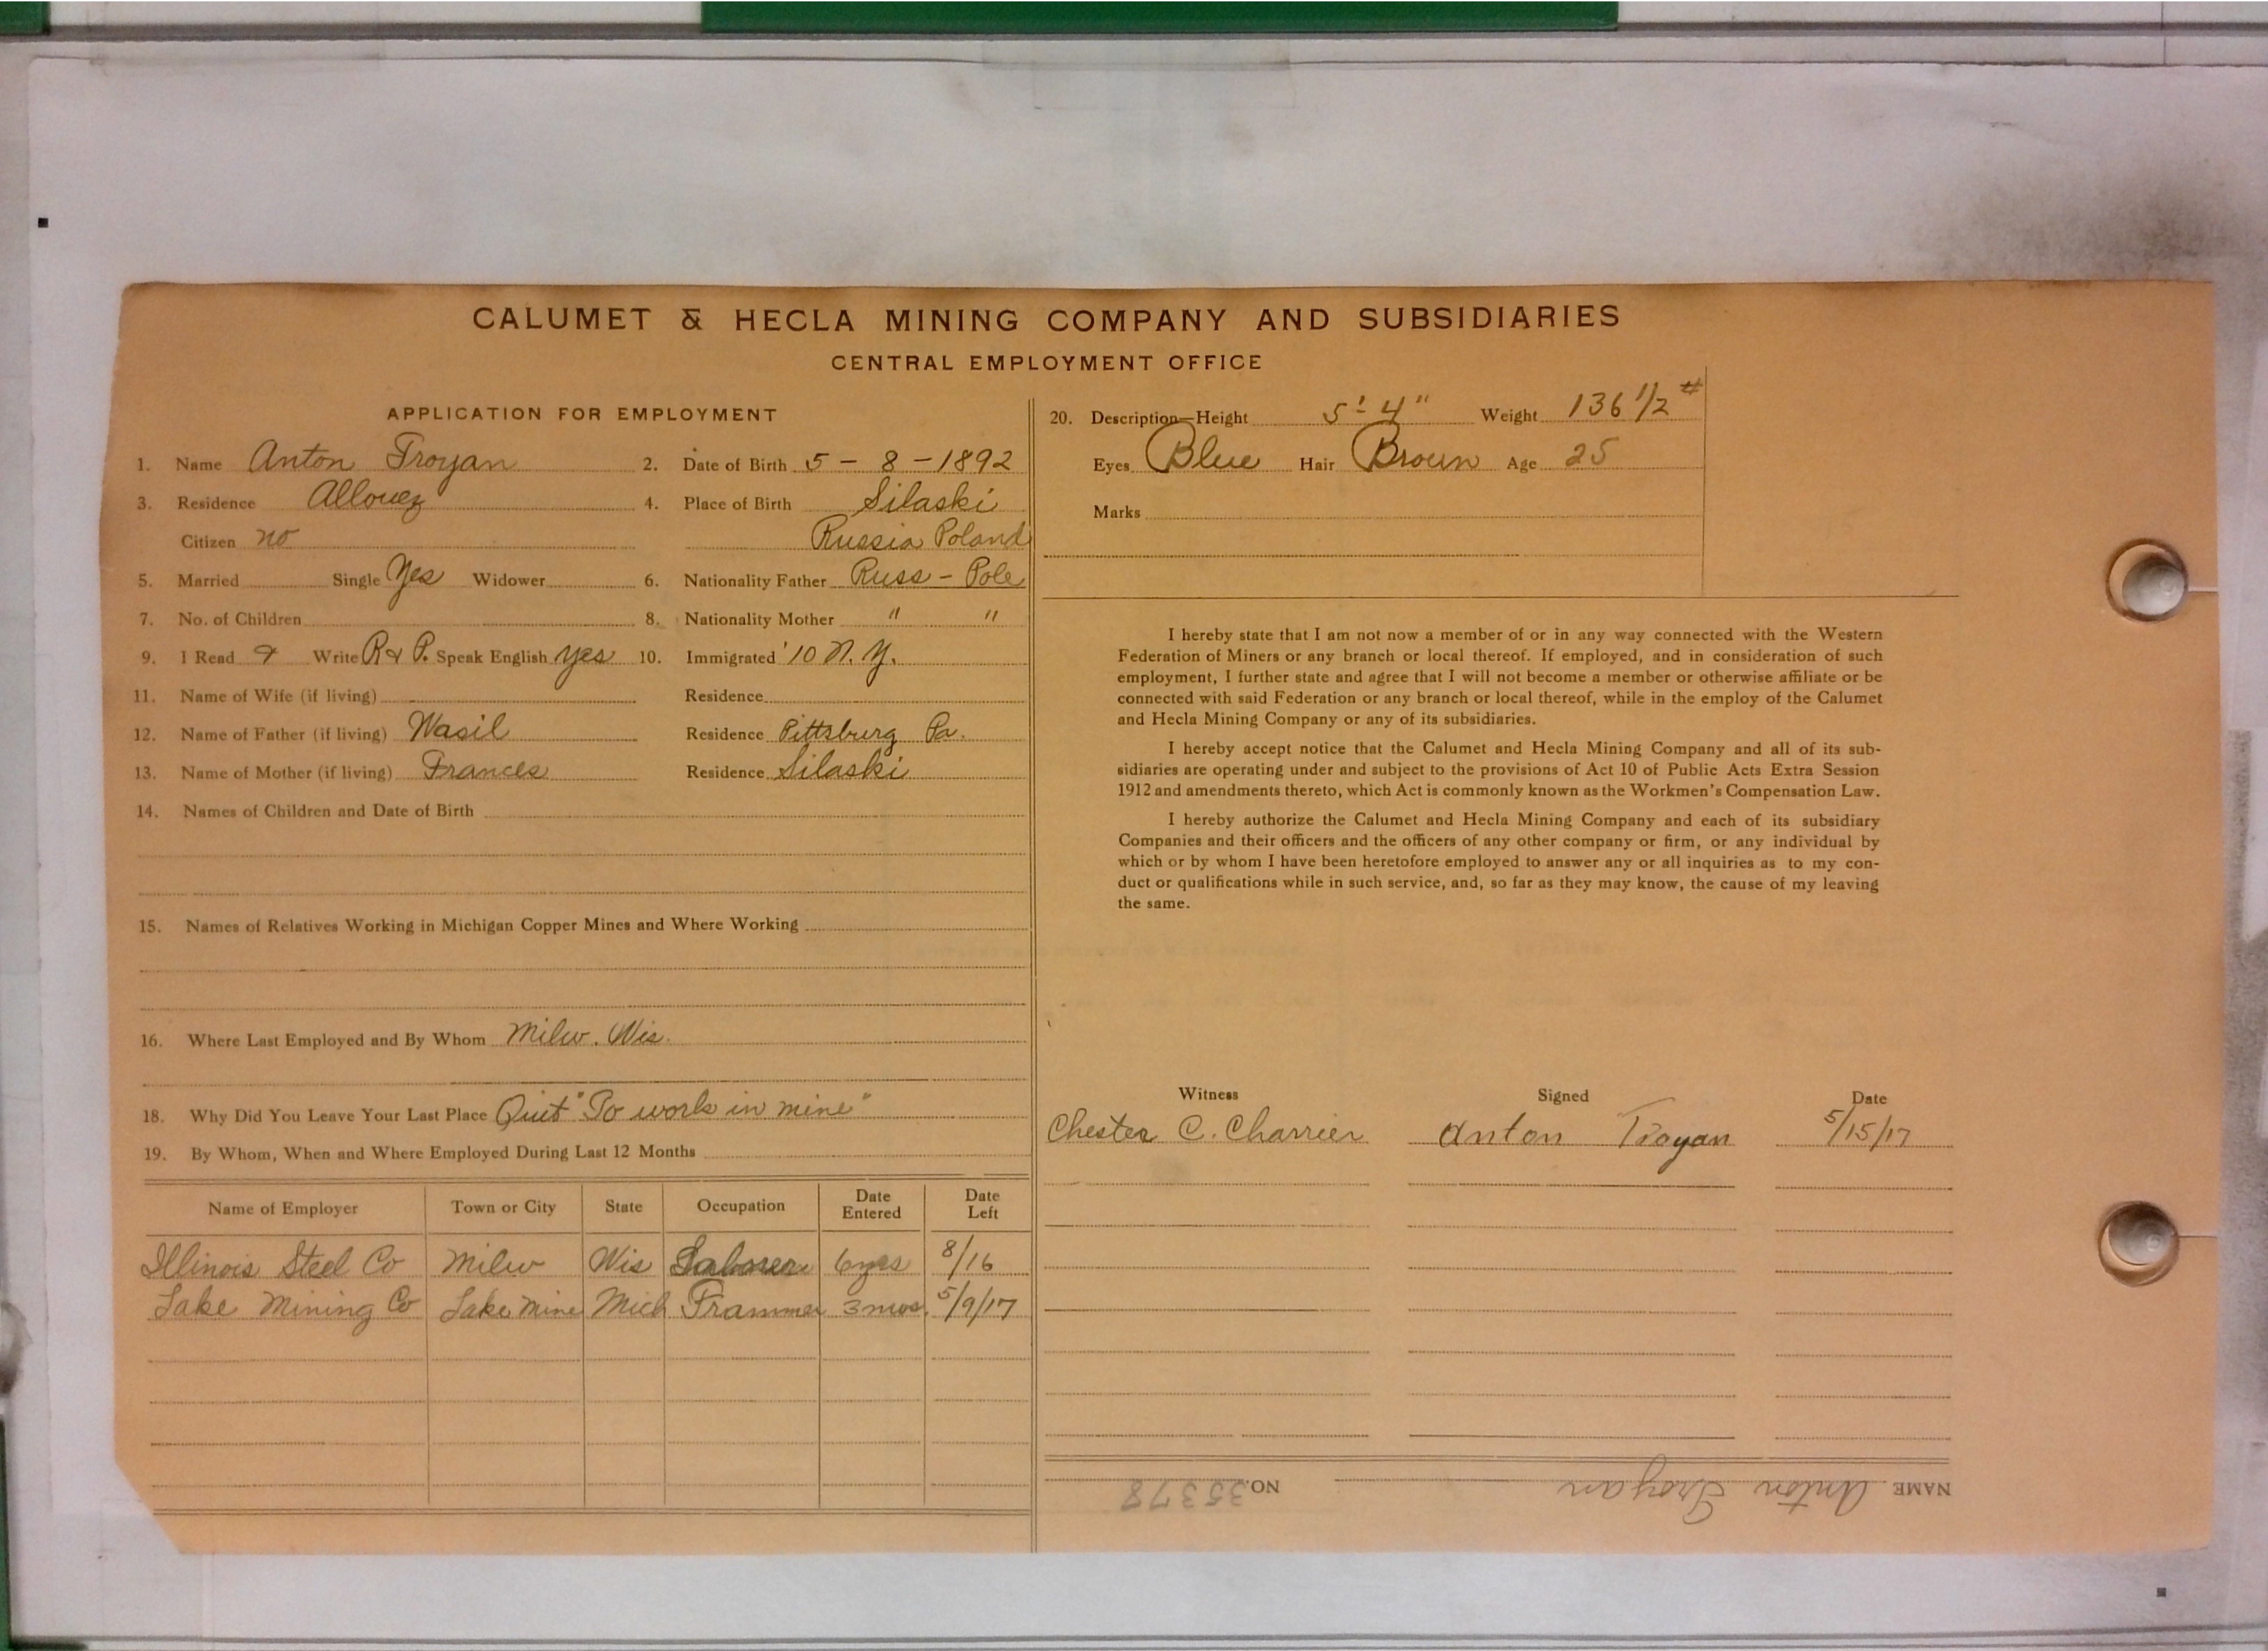 CALUMET & HECLA MINING COMPANY AND SUBSIDIARIES
CENTRAL EMPLOYMENT OFFICE
APPLICATION FOR EMPLOYMENT
1. Name Anton Troyan 2. Date of Birth 5 - 8 - 1892
3. Residence Allouez 4. Place of Birth Silaski
Citizen no Russia Poland
5. Married Single Yes Widower 6. Nationality Father Russ - Pole
7. No. of Children 8. Nationality Mother " "
9. I Read & Write R & P. Speak English yes 10. Immigrated '10 N.Y.
11. Name of Wife (if living) Residence
12. Name of Father (if living) Wasil Residence Pittsburg Pa.
13. Name of Mother (if living) Frances Residence Silaski
14. Names of Children and Date of Birth
15. Names of Relatives Working in Michigan Copper Mines and Where Working
16. Where Last Employed and By Whom Milw. Wis.
18. Why Did You Leave Your Last Place Quit "To work in mine"
19. By Whom, When and Where Employed During Last 12 Months
Name of Employer Town or City State Occupation Date Entered Date Left
Illinois Steel Co Milw Wis Laborer 6 yrs 8/16
Lake Mining Co Lake Mine Mich Trammer 3 mos. 5/9/17
20. Description—Height 5' 4" Weight 136 1/2 #
Eyes Blue Hair Brown Age 25
Marks
I hereby state that I am not now a member of or in any way connected with the Western
Federation of Miners or any branch or local thereof. If employed, and in consideration of such
employment, I further state and agree that I will not become a member or otherwise affiliate or be
connected with said Federation or any branch or local thereof, while in the employ of the Calumet
and Hecla Mining Company or any of its subsidiaries.
I hereby accept notice that the Calumet and Hecla Mining Company and all of its sub-
sidiaries are operating under and subject to the provisions of Act 10 of Public Acts Extra Session
1912 and amendments thereto, which Act is commonly known as the Workmen's Compensation Law.
I hereby authorize the Calumet and Hecla Mining Company and each of its subsidiary
Companies and their officers and the officers of any other company or firm, or any individual by
which or by whom I have been heretofore employed to answer any or all inquiries as to my con-
duct or qualifications while in such service, and, so far as they may know, the cause of my leaving
the same.
Witness Signed Date
Chester C. Charrier Anton Troyan 5/15/17
NAME Anton Troyan NO. 35378